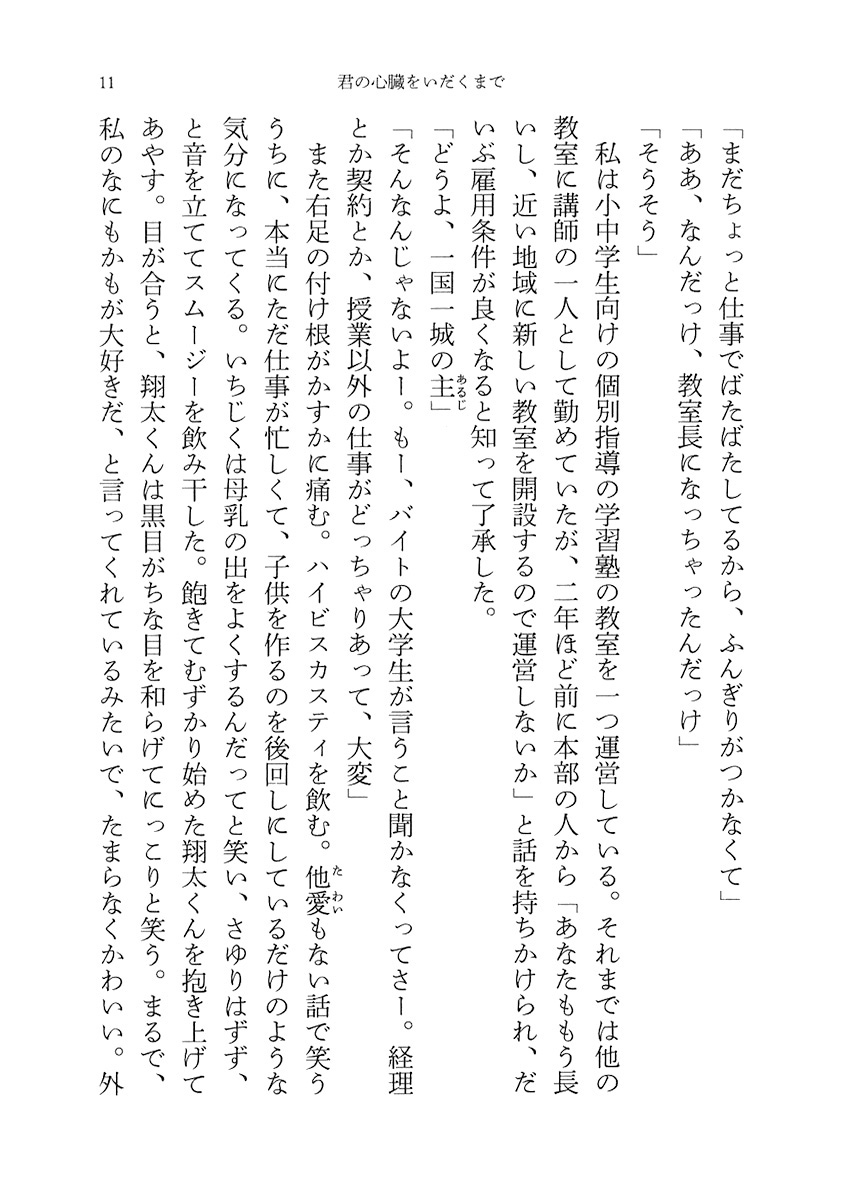 11
君の心臓をいだくまで
「まだちょっと仕事でばたばたしてるから、ふんぎりがつかなくて」
「ああ、なんだっけ、教室長になっちゃったんだっけ」
「そうそう」
私は小中学生向けの個別指導の学習塾の教室を一つ運営している。それまでは他の
教室に講師の一人として勤めていたが、二年ほど前に本部の人から「あなたももう長
いし、近い地域に新しい教室を開設するので運営しないか」と話を持ちかけられ、だ
いぶ雇用条件が良くなると知って了承した。
「どうよ、一国一城の主あるじ」
「そんなんじゃないよー。もー、バイトの大学生が言うこと聞かなくってさー。経理
とか契約とか、授業以外の仕事がどっちゃりあって、大変」
また右足の付け根がかすかに痛む。ハイビスカスティを飲む。他愛たわいもない話で笑う
うちに、本当にただ仕事が忙しくて、子供を作るのを後回しにしているだけのような
気分になってくる。いちじくは母乳の出をよくするんだってと笑い、さゆりはずず、
と音を立ててスムージーを飲み干した。飽きてむずかり始めた翔太くんを抱き上げて
あやす。目が合うと、翔太くんは黒目がちな目を和らげてにっこりと笑う。まるで、
私のなにもかもが大好きだ、と言ってくれているみたいで、たまらなくかわいい。外